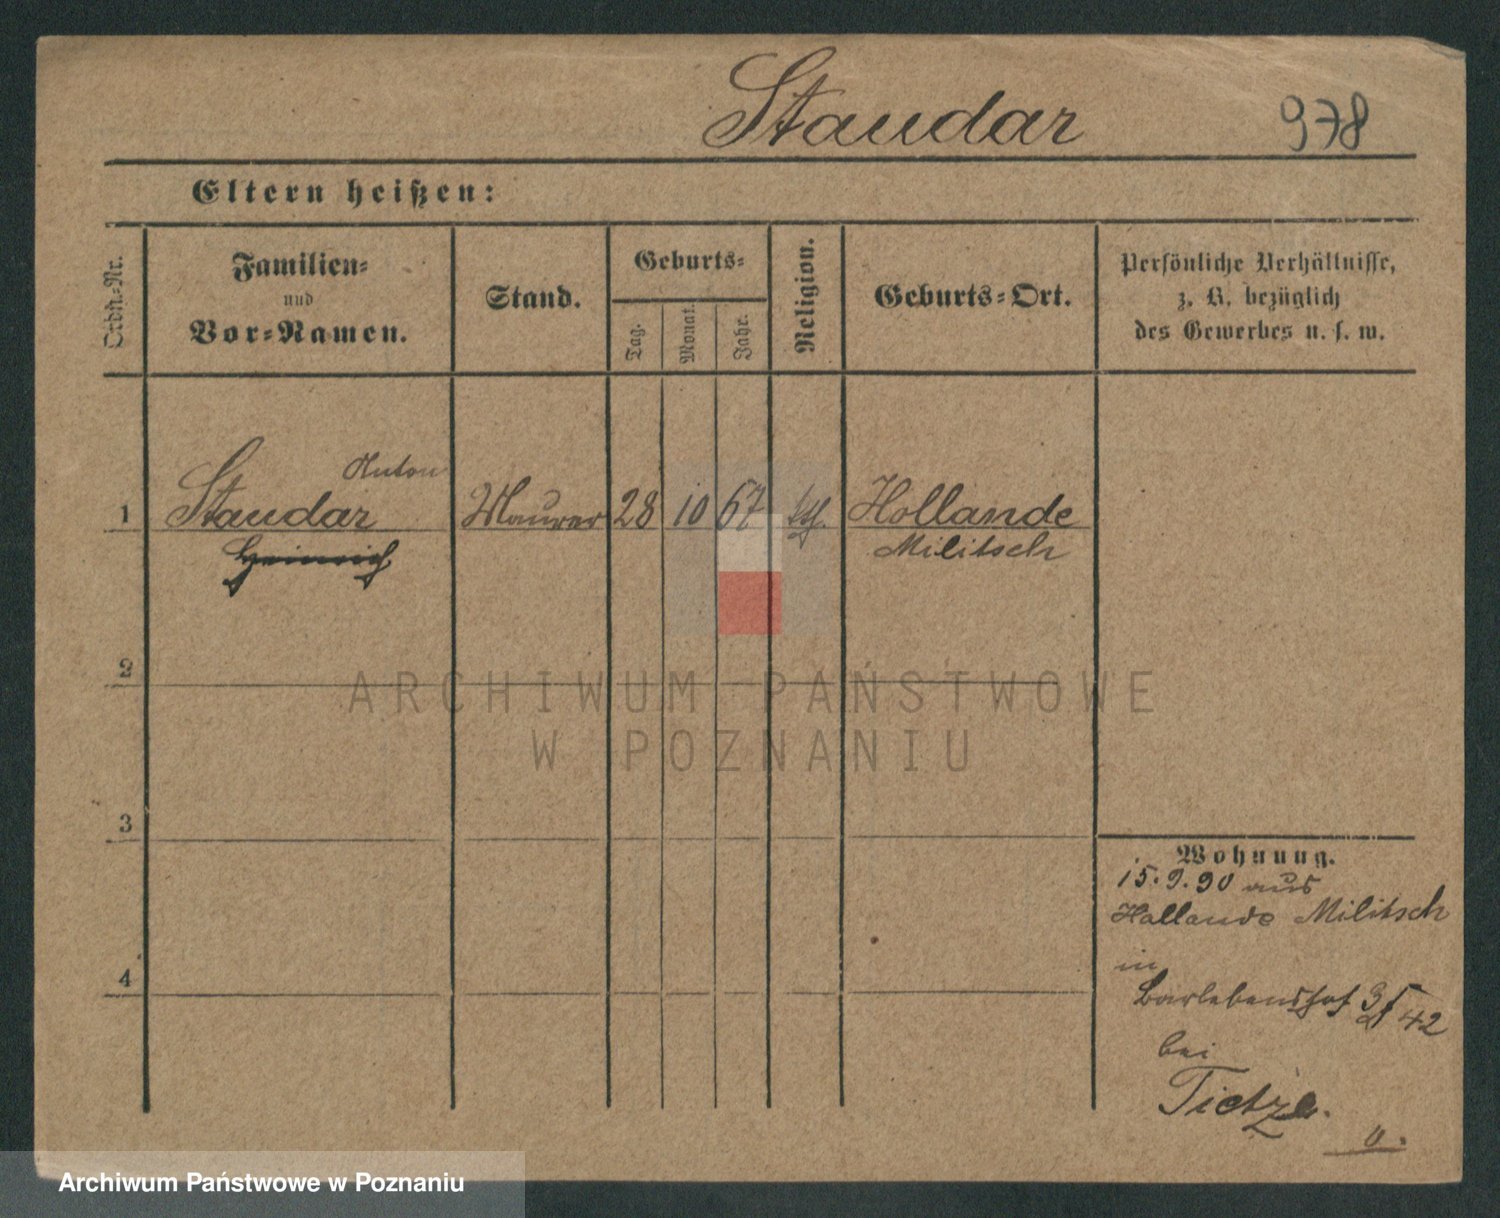 Staudar 978
Eltern heißen:
Ordn.-Nr.
Familien-
und
Vor-Namen.
Stand.
Geburts-
Tag.
Monat.
Jahr.
Religion.
Geburts-Ort.
Persönliche Verhältnisse,
z. B. bezüglich
des Gewerbes u. s. w.
Anton
1 Staudar Maurer 28 10 67 kth. Hollande
Heinrich Militsch
2
3
4
ARCHIWUM PAŃSTWOWE
W POZNANIU
Wohnung.
15.9.90 aus
Hallande Militsch
in
Barlebenshof 42
bei
Tietze.
Archiwum Państwowe w Poznaniu